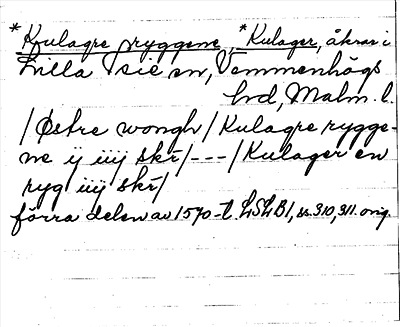 *Kulagre ryggene, *Kulager, åkrar i
Lilla Isie sn, Vemmenhögs
hd, Malm. l.
/Østre wongh/Kulagre rygge-
ne ij iiij skr/---/Kulager en
ryg iiij skr/
förra delen av 1570-t. LSLB1, s. 310, 311. orig.